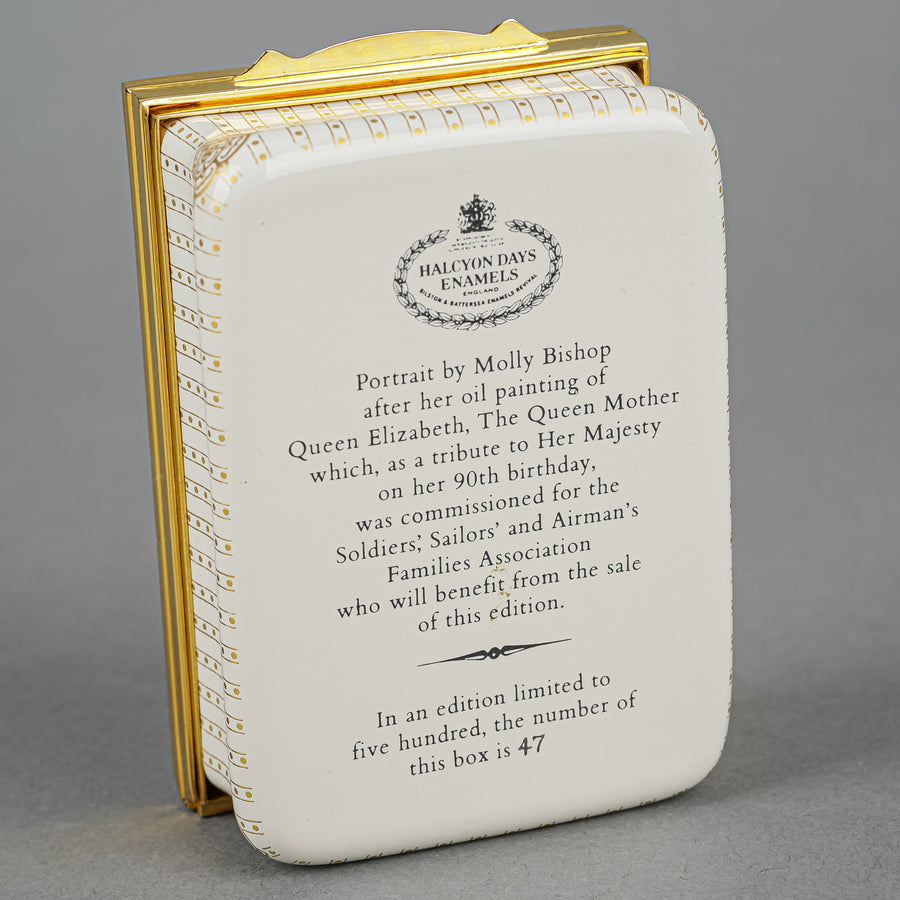 HALCYON DAYS
ENAMELS
ENGLAND
BILSTON & BATTERSEA ENAMELS REVIVAL
Portrait by Molly Bishop
after her oil painting of
Queen Elizabeth, The Queen Mother
which, as a tribute to Her Majesty
on her 90th birthday,
was commissioned for the
Soldiers', Sailors' and Airman's
Families Association
who will benefit from the sale
of this edition.
In an edition limited to
five hundred, the number of
this box is 47